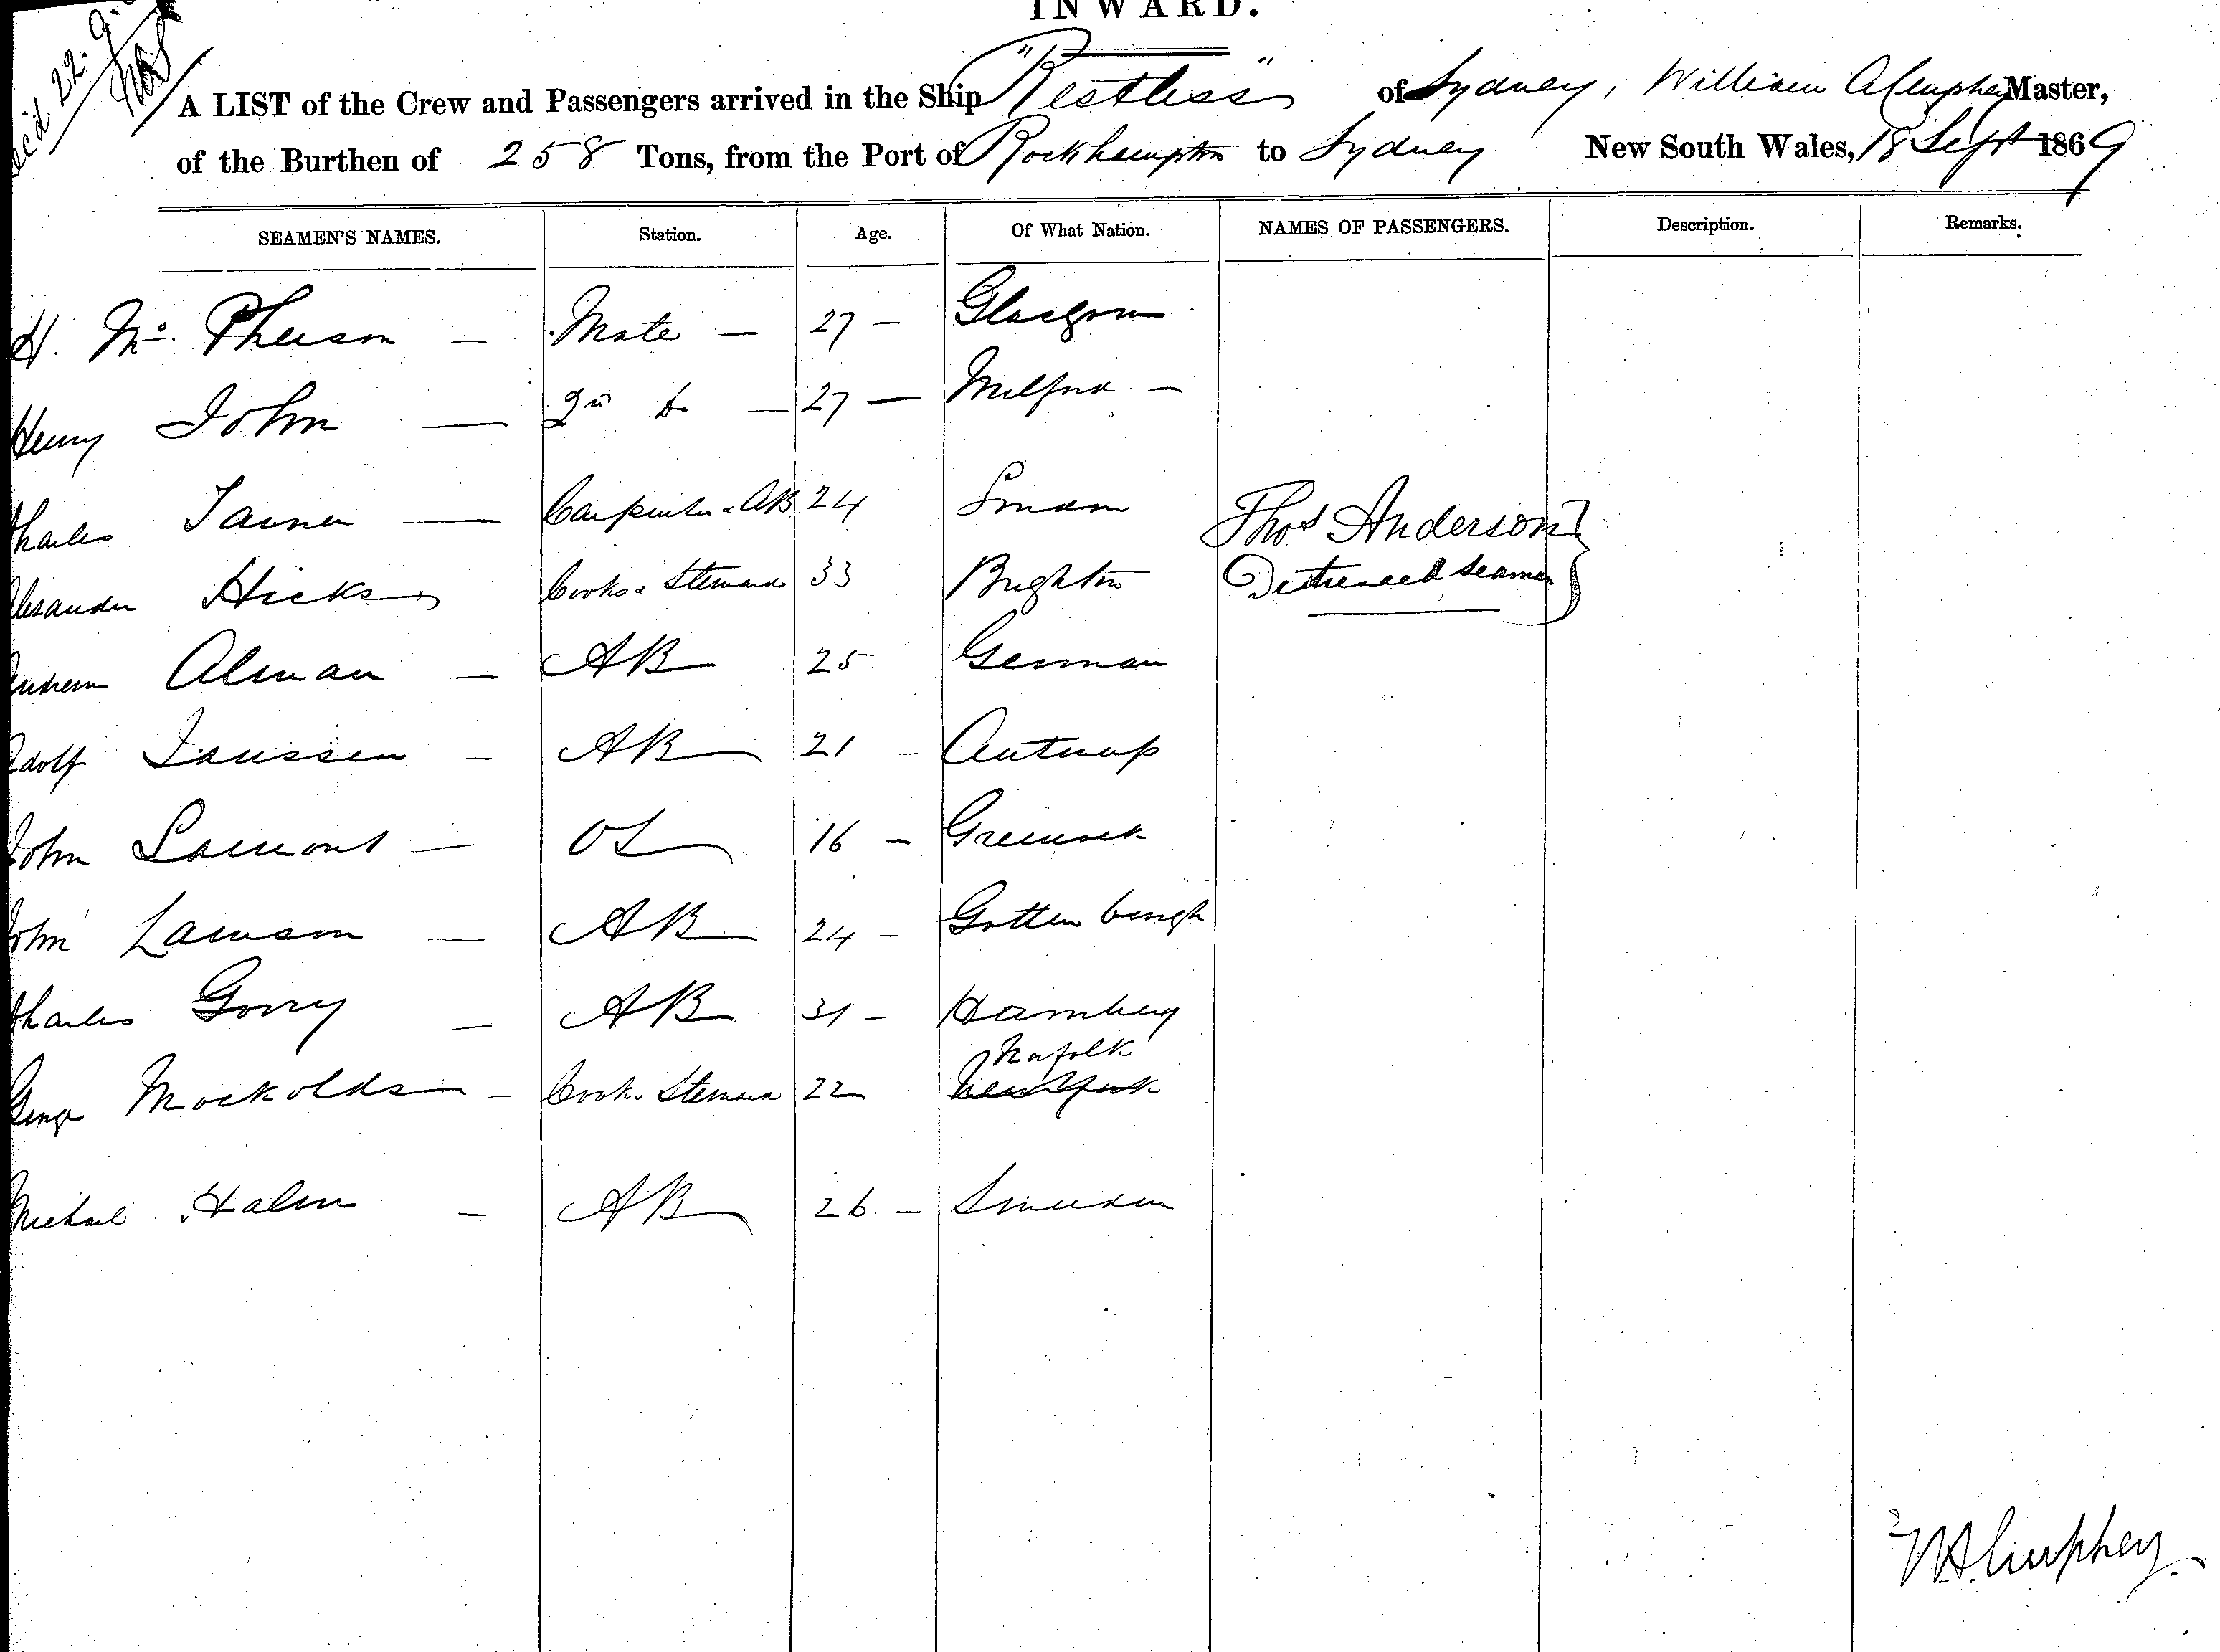 INWARD.
A LIST of the Crew and Passengers arrived in the Ship "Restless" of Sydney, William Master,
of the Burthen of 258 Tons, from the Port of Rockhampton to Sydney New South Wales, 18 Sept 1869
SEAMEN'S NAMES. Station. Age. Of What Nation. NAMES OF PASSENGERS. Description. Remarks.
H. Mc. Pherson — Mate — 27 — Glasgow
Henry John — 2nd do — 27 — Milford —
Charles — Carpenter & AB 24 London Thos Anderson
Alexander Hicks Cook & Steward 33 Brighton Distressed Seaman
Andrew Alman — AB 25 German
Adolf Janssen — AB 21 — Antwerp
John Lamont — OS 16 — Greenock
John Lawson — AB 24 — Gottenburgh
Charles Gorry — AB 31 — Hamburg
Norfolk
George Mockolds — Cook & Steward 22 New York
Michael Halm — AB 26 — Sweeden